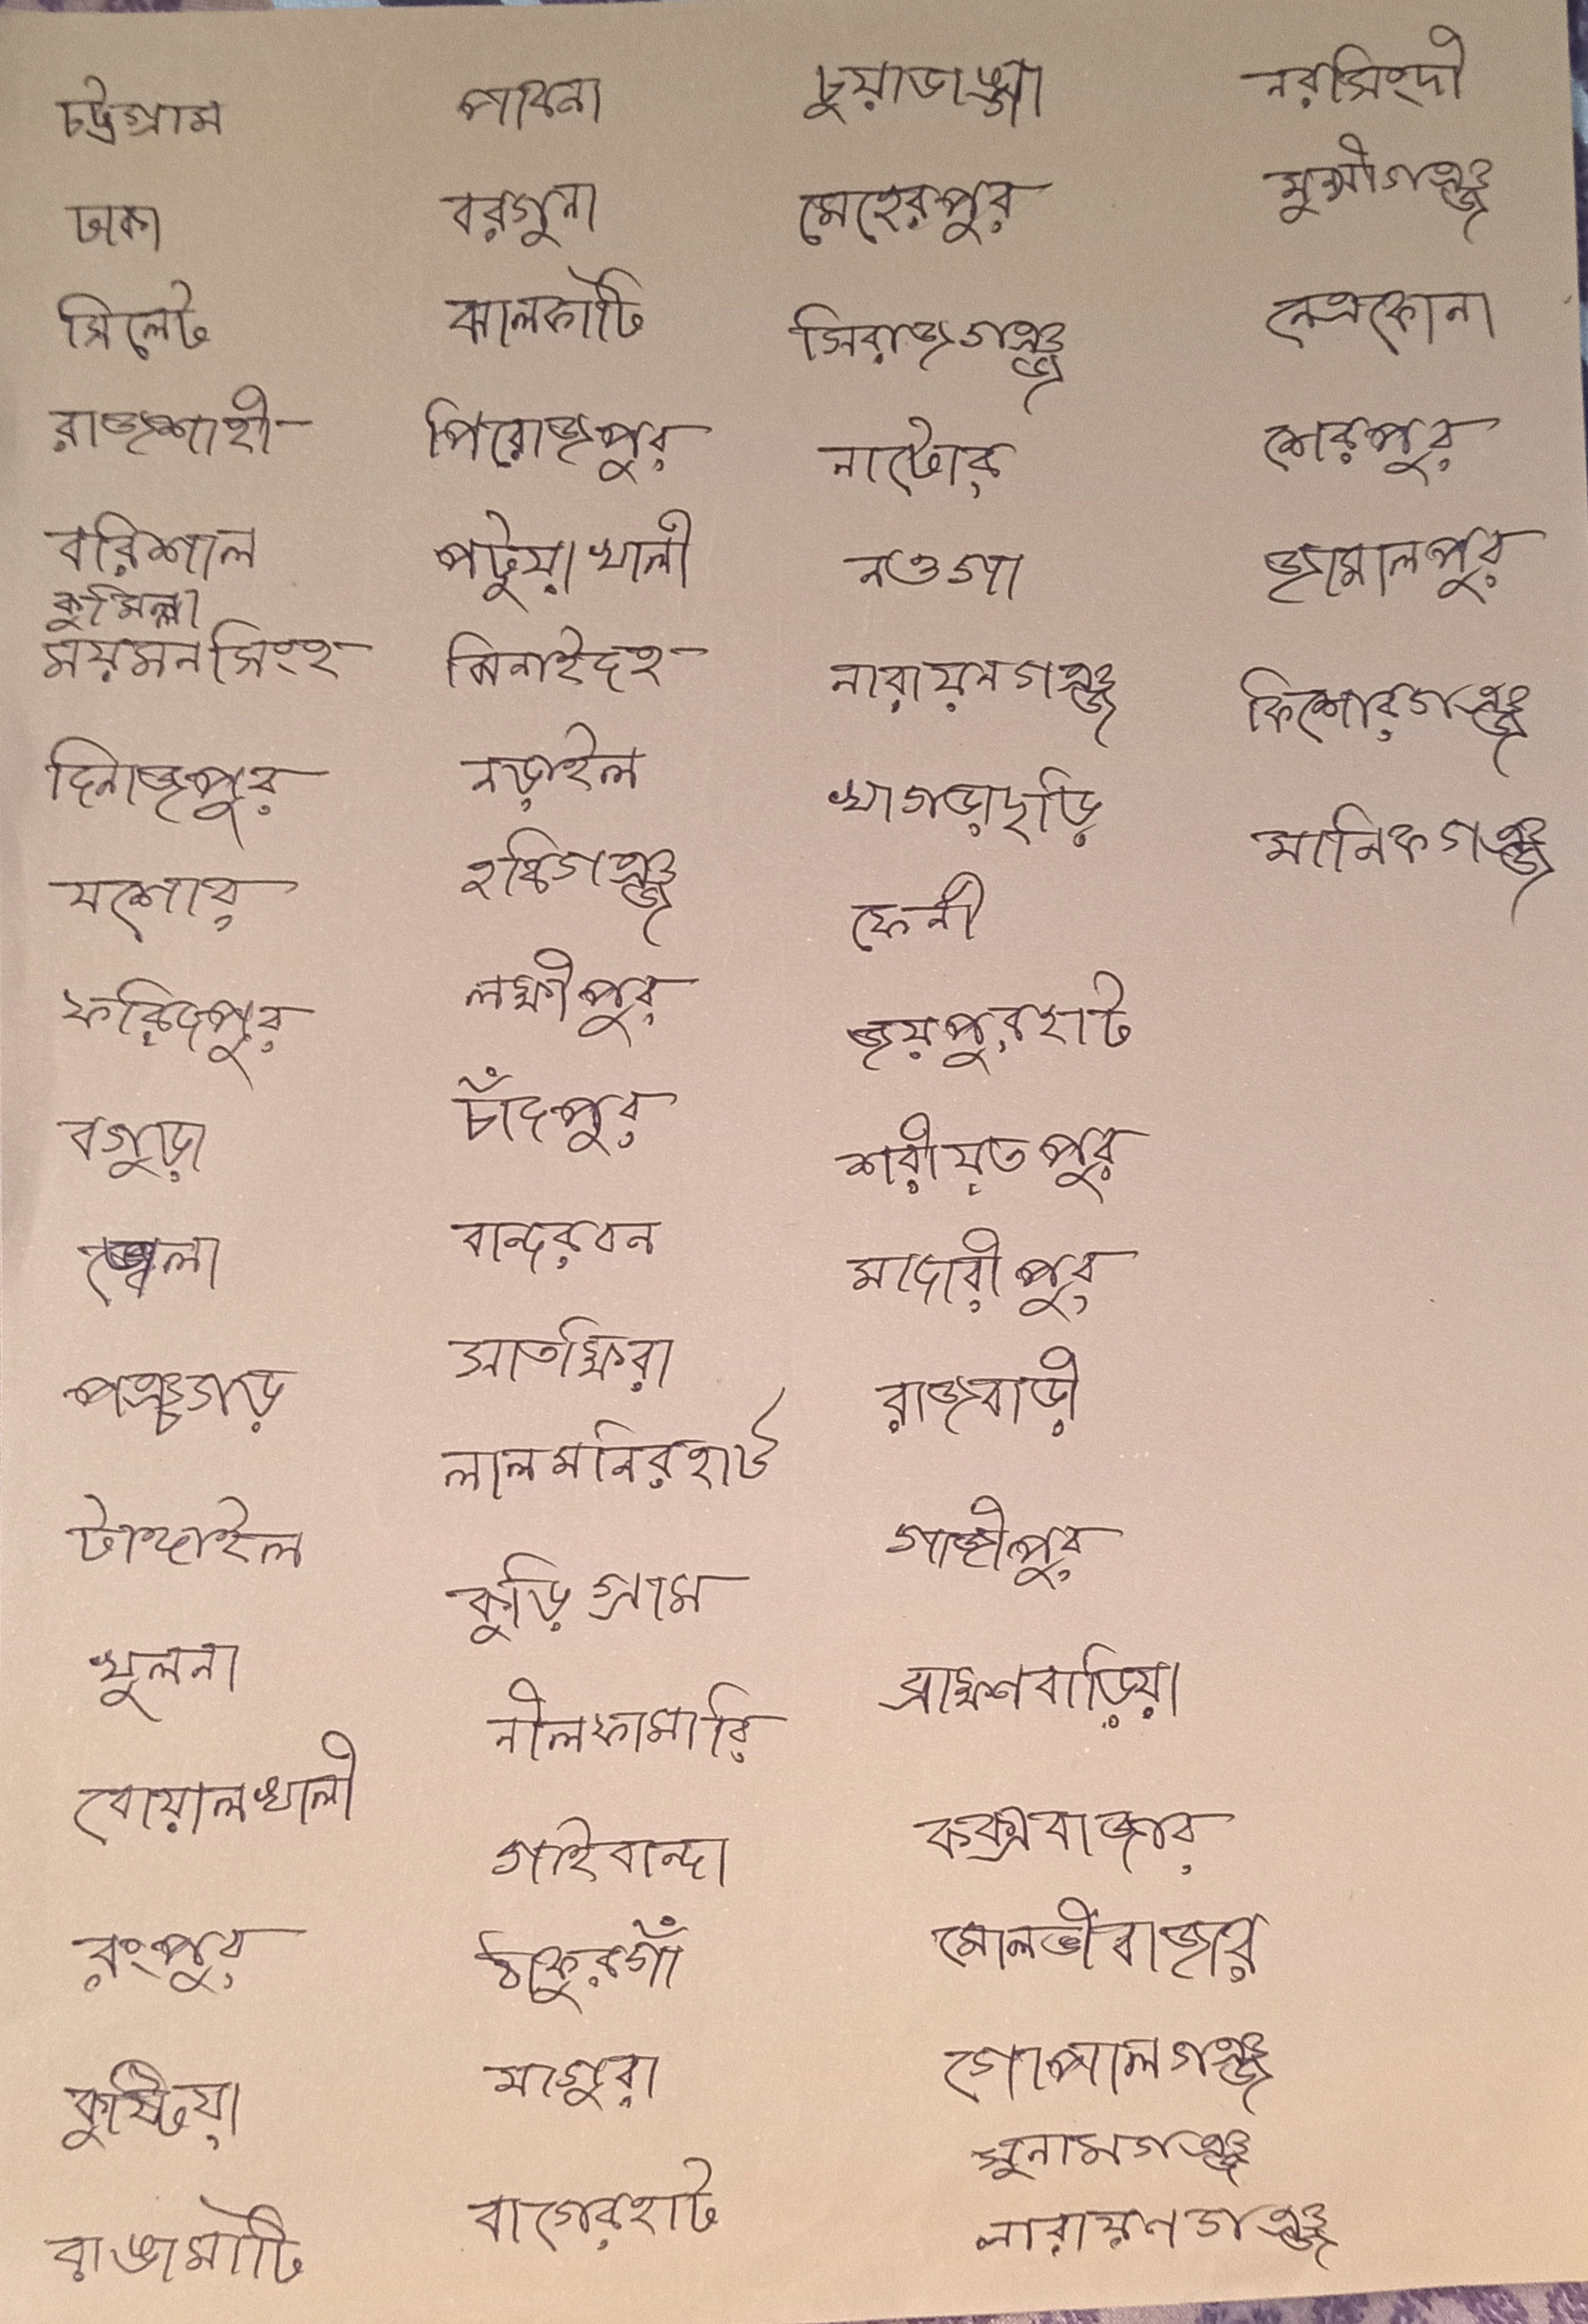 চট্টগ্রাম
ঢাকা
সিলেট
রাজশাহী
বরিশাল
কুমিল্লা
ময়মনসিংহ
দিনাজপুর
যশোর
ফরিদপুর
বগুড়া
পঞ্চগড়
টাঙ্গাইল
খুলনা
বোয়ালখালী
রংপুর
কুষ্টিয়া
রাঙামাটি
পাবনা
বরগুনা
ঝালকাটি
পিরোজপুর
পটুয়াখালী
ঝিনাইদহ
নড়াইল
হবিগঞ্জ
লক্ষীপুর
চাঁদপুর
বান্দরবন
সাতক্ষিরা
লালমনিরহার্ট
কুড়িগ্রাম
নীলফামারি
গাইবান্দা
ঠাকুরগাঁ
মাগুরা
বাগেরহাট
চুয়াডাঙ্গা
মেহেরপুর
সিরাজগঞ্জ
নাটোর
নওগা
নারায়নগঞ্জ
খাগড়াছড়ি
ফেনী
জয়পুরহাট
শরীয়তপুর
মাদারীপুর
রাজবাড়ী
গাজীপুর
ব্রাহ্মণবাড়িয়া
কক্সবাজার
মোলভীবাজার
গোপালগঞ্জ
সুনামগঞ্জ
নারায়নগঞ্জ
নরসিংদী
মুন্সীগঞ্জ
নেত্রকোনা
শেরপুর
জামালপুর
কিশোরগঞ্জ
মানিকগঞ্জ